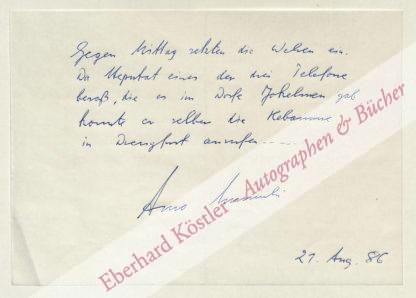 Gegen Mittag setzten die Wehen ein.
Da Meputat eines der drei Telefone
besaß, die es im Dorfe Jokehnen gab
konnte er selber die Hebamme
in Drengfurt anrufen.....
Arno Surminski
21. Aug. 86
Eberhard Köstler Autographen & Bücher